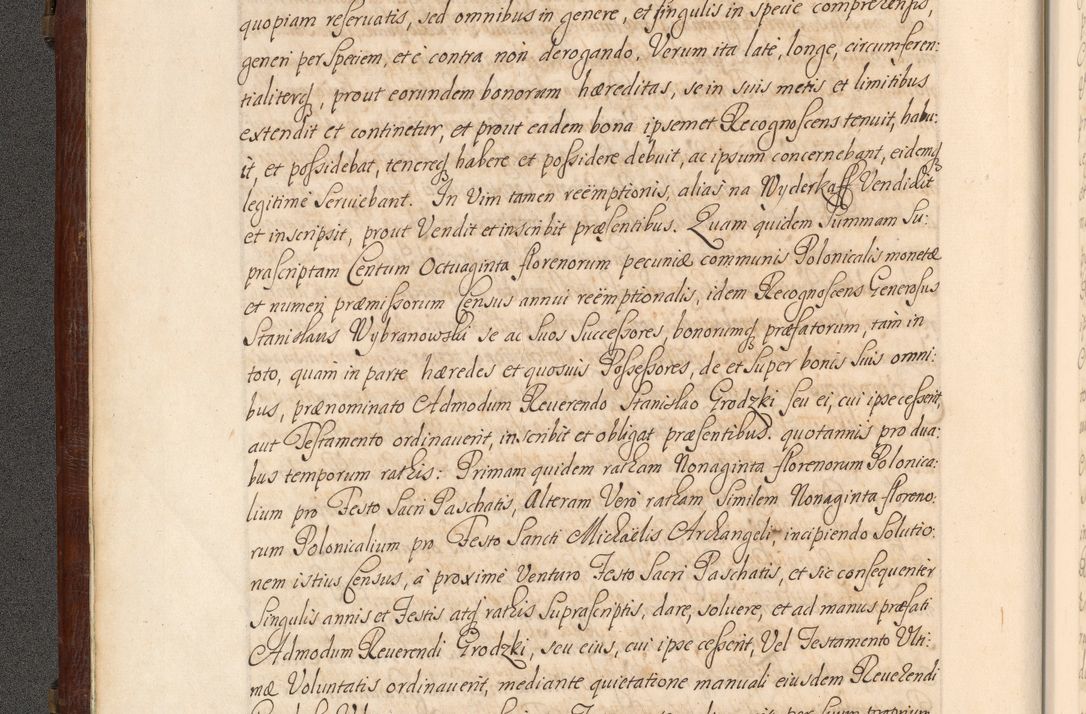 quopiam reservatis, sed omnibus in genere, et singulis in specie comprehensis,
generi per speciem, et è contra non derogando. Verum ita late, longe, circumferen:
tialiterq3, prout eorundem bonorum hæreditas, se in suis metis et limitibus
extendit et continetur, et prout eadem bona ipsemet Recognoscens tenuit, habu:
it, et possidebat, tenereq3 habere et possidere debuit, ac ipsum concernebant, eidemq3
legitime serviebant. In Vim tamen reëmptionis, alias na Wyderkaff Vendidit
et inscripsit, prout Vendit et inscribit præsentibus. Quam quidem Summam Su:
prascriptam Centum Octuaginta florenorum pecuniæ communis Polonicalis monetæ
et numeri præmissorum Census annui reëmptionalis, idem Recognoscens Generosus
Stanislaus Wybranowski se ac suos Successores, bonorumq3 præfatorum, tam in
toto, quam in parte hæredes et quosvis Possessores, de et super bonis suis omni:
bus, prænominato Admodum Reverendo Stanislao Grodzki seu ei, cui ipse cesserit,
aut Testamento ordinaverit, inscribit et obligat præsentibus. quotannis pro dua:
bus temporum rathis: Primam quidem ratham Nonaginta florenorum Polonica:
lium pro Festo Sacri Paschatis, Alteram Verò ratham Similem Nonaginta floreno:
rum Polonicalium pro Festo Sancti Michaëlis Archangeli, incipiendo Solutio:
nem istius Census, à proximè Venturo Festo Sacri Paschatis, et sic consequenter
Singulis annis et Festis atq3 rathis Suprascriptis, dare, solvere, et ad manus præfati
Admodum Reverendi Grodzki, seu eius, cui ipse cesserit, Vel Testamento Ulti:
mæ Voluntatis ordinaverit, mediante quietatione manuali eiusdem Reverendi